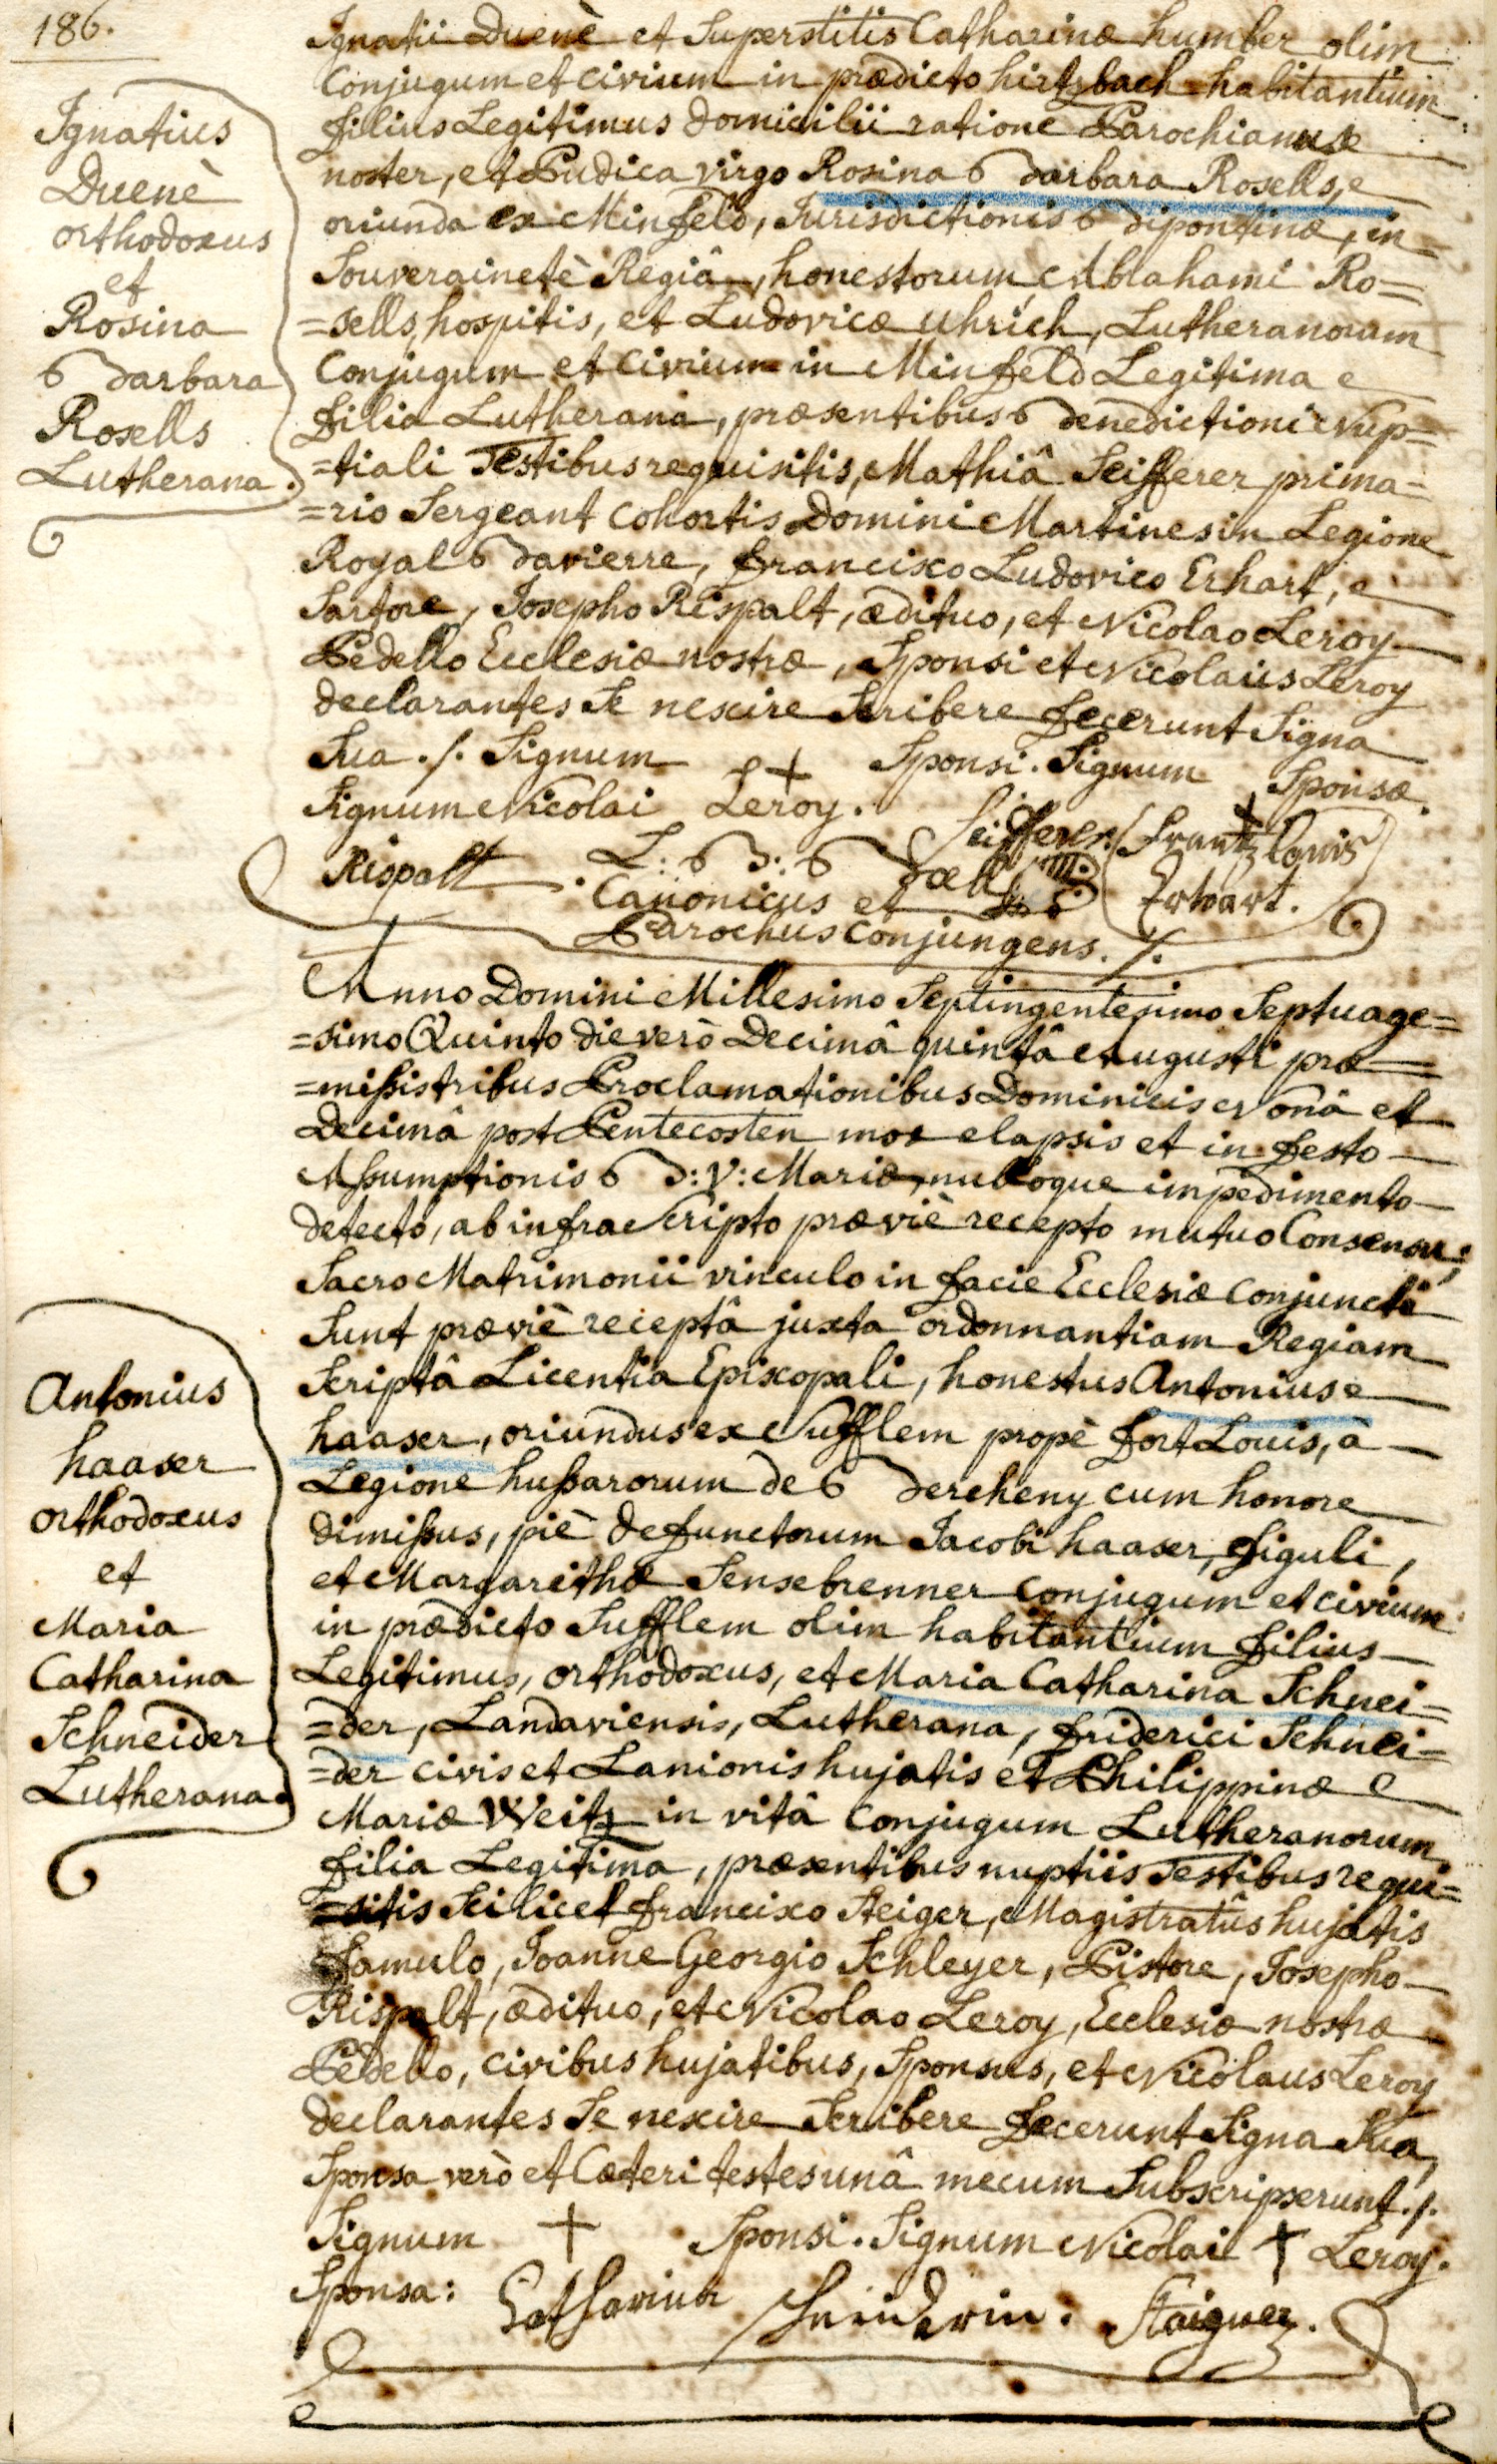 186.
Ignatii Duenè et Superstitis Catharinæ humber olim
Conjugum et Civium in prædicto hirtzbach habitantium
filius Legitimus domicilii ratione Parochianus
noster, et Pudica virgo Rosina Barbara Rosells,
oriunda ex Minfeld, Jurisdictionis Bipontinæ, in
Souverainetè Regiâ, honestorum Abrahami Ro=
=sells, hospitis, et Ludovicæ Uhrich, Lutheranorum
Conjugum et Civium in Minfeld Legitima
filia Lutherana, præsentibus Benedictioni Nup=
=tiali Testibus requisitis, Mathiâ Seifferer prima=
=rio Sergeant Cohortis Domini Martines in Legione
Royal Bavierre, francisco Ludovico Erhart,
Sartore, Josepho Rispalt, ædituo, et Nicolao Leroy
Pedello Ecclesiæ nostræ, Sponsi et Nicolaus Leroy
declarantes Se nescire Scribere fecerunt Signa
Sua ./. Signum + Sponsi. Signum + Sponsæ.
Signum Nicolai + Leroy.
Seifferer
Frantz Louis
Erhart.
Rispalt
L: B: B
Canonicus et
Parochus Conjungens. /.
Ignatius
Duenè
orthodoxus
et
Rosina
Barbara
Rosells
Lutherana.
Anno Domini Millesimo Septingentesimo Septuage=
=simo Quinto die verò Decimâ quintâ Augusti præ=
=missis tribus Proclamationibus Dominicis Nonâ et
Decimâ post Pentecosten mox elapsis et in festo
Assumptionis B: V: Mariæ, nulloque impedimento
detecto, ab infra Scripto præviè recepto mutuo Consensu,
Sacro Matrimonii vinculo in facie Ecclesiæ Conjuncti
Sunt præviè receptâ juxta ordonnantiam Regiam
Scriptâ Licentia Episcopali, honestus Antonius
haaser, oriundus ex Sufflem propè fort Louis, à
Legione hussarorum de Bercheny cum honore
dimissus, piè defunctorum Jacobi haaser, figuli,
et Margarithæ Sensebrenner Conjugum et Civium
in prædicto Sufflem olim habitantium filius
Legitimus, orthodoxus, et Maria Catharina Schnei=
=der, Landaviensis, Lutherana, friderici Schnei=
=der Civis et Lanionis hujatis et Philippinæ
Mariæ Weitz in vitâ Conjugum Lutheranorum
filia Legitima, præsentibus nuptiis Testibus requi=
=sitis Scilicet francisco Steiger, Magistratûs hujatis
famulo, Joanne Georgio Schleyer, Pistore, Josepho
Rispalt, ædituo, et Nicolao Leroy, Ecclesiæ nostræ
Pedello, Civibus hujatibus, Sponsus, et Nicolaus Leroy
declarantes Se nescire Scribere fecerunt Signa Sua,
Sponsa verò et Cæteri testes unâ mecum Subscripserunt ./.
Signum + Sponsi. Signum Nicolai + Leroy.
Sponsa: Catharina Schneiderin. Staiguer.
Antonius
haaser
orthodoxus
et
Maria
Catharina
Schneider
Lutherana.